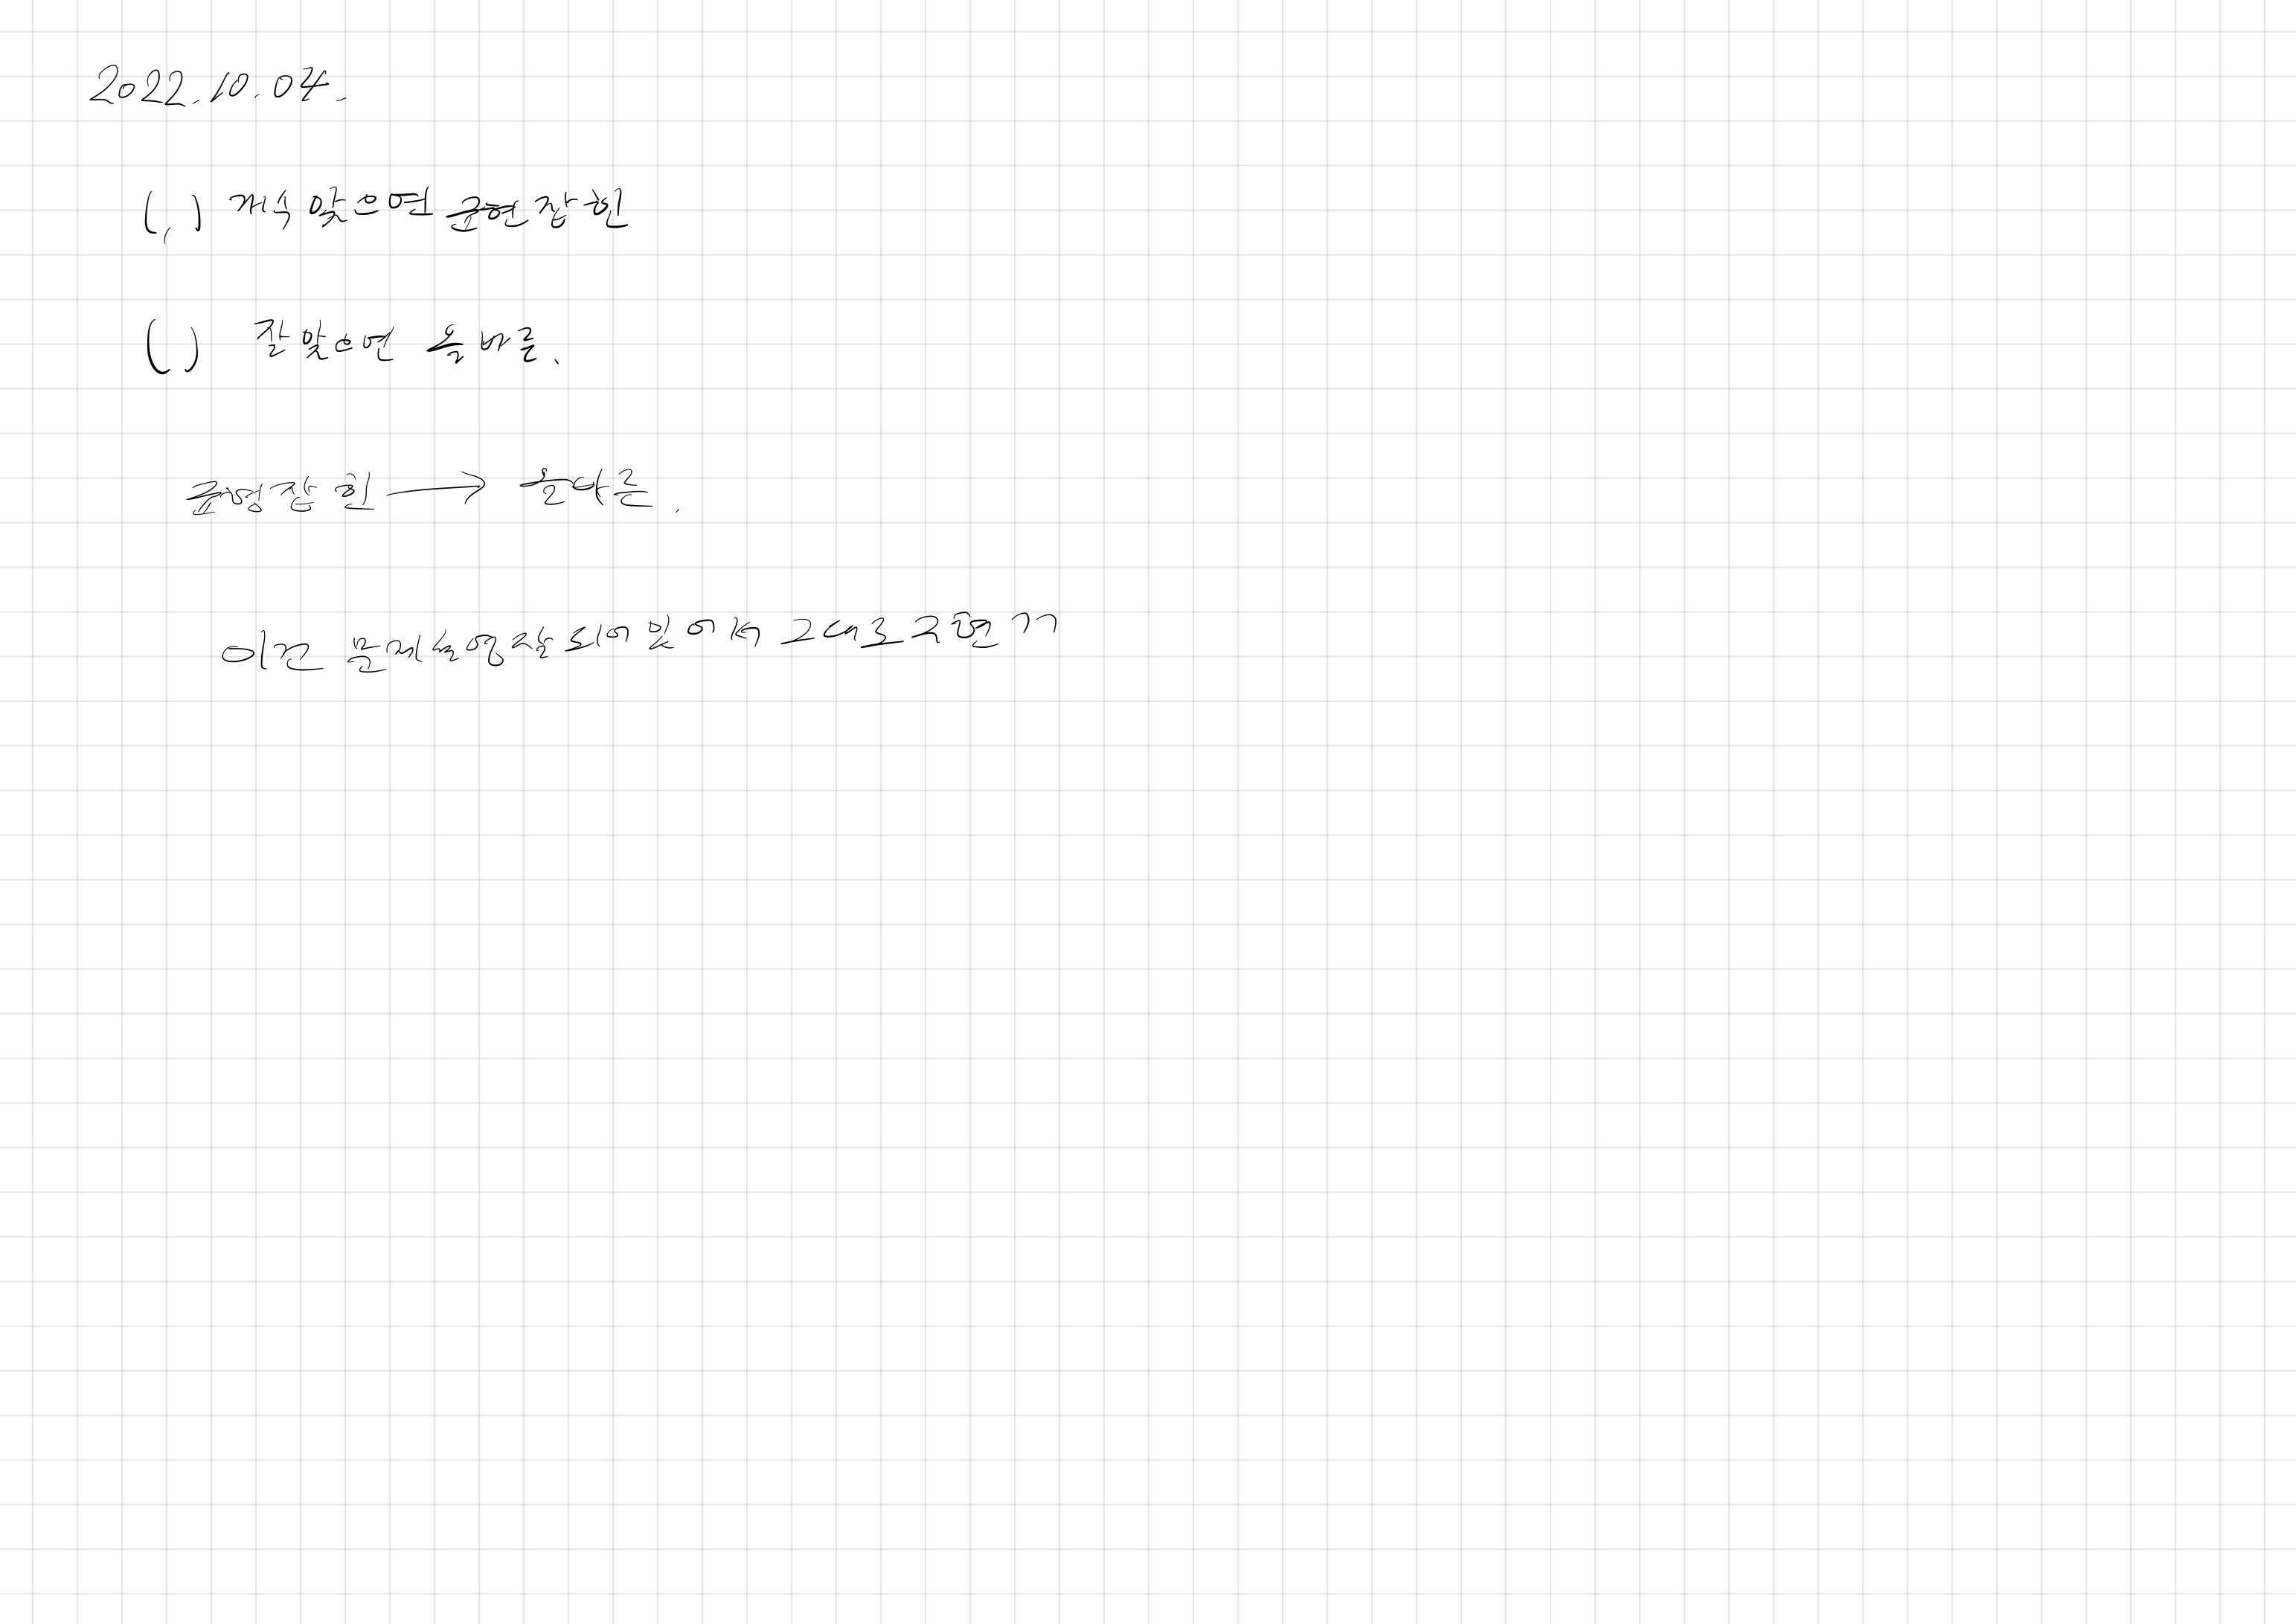 2022.10.04.
( , ) 개수 맞으면 균형잡힌
( ) 짝 맞으면 올바른.
균형잡힌 → 올바른.
이건 문제 설명 잘 되어 있어서 그대로 구현 ㄱㄱ